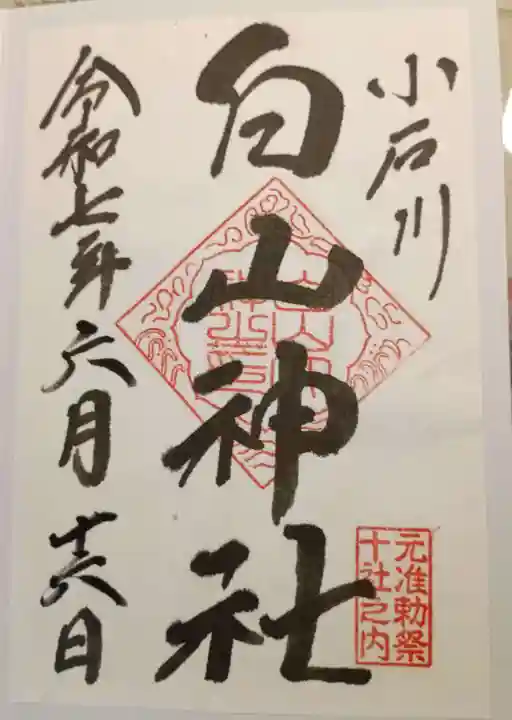 小石川
白山神社
元准勅祭
十社之内
令和七年六月十六日